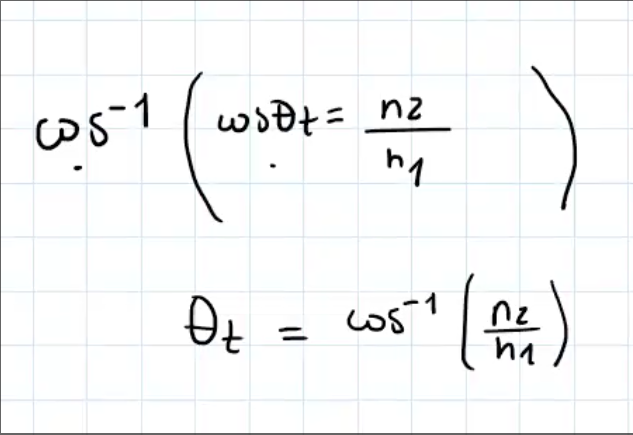 cos⁻¹ ( cosθt = n2/n1 )
θt = cos⁻¹ (n2/n1)